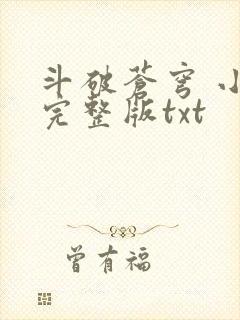 斗破苍穹 小
完整版txt
曾有福